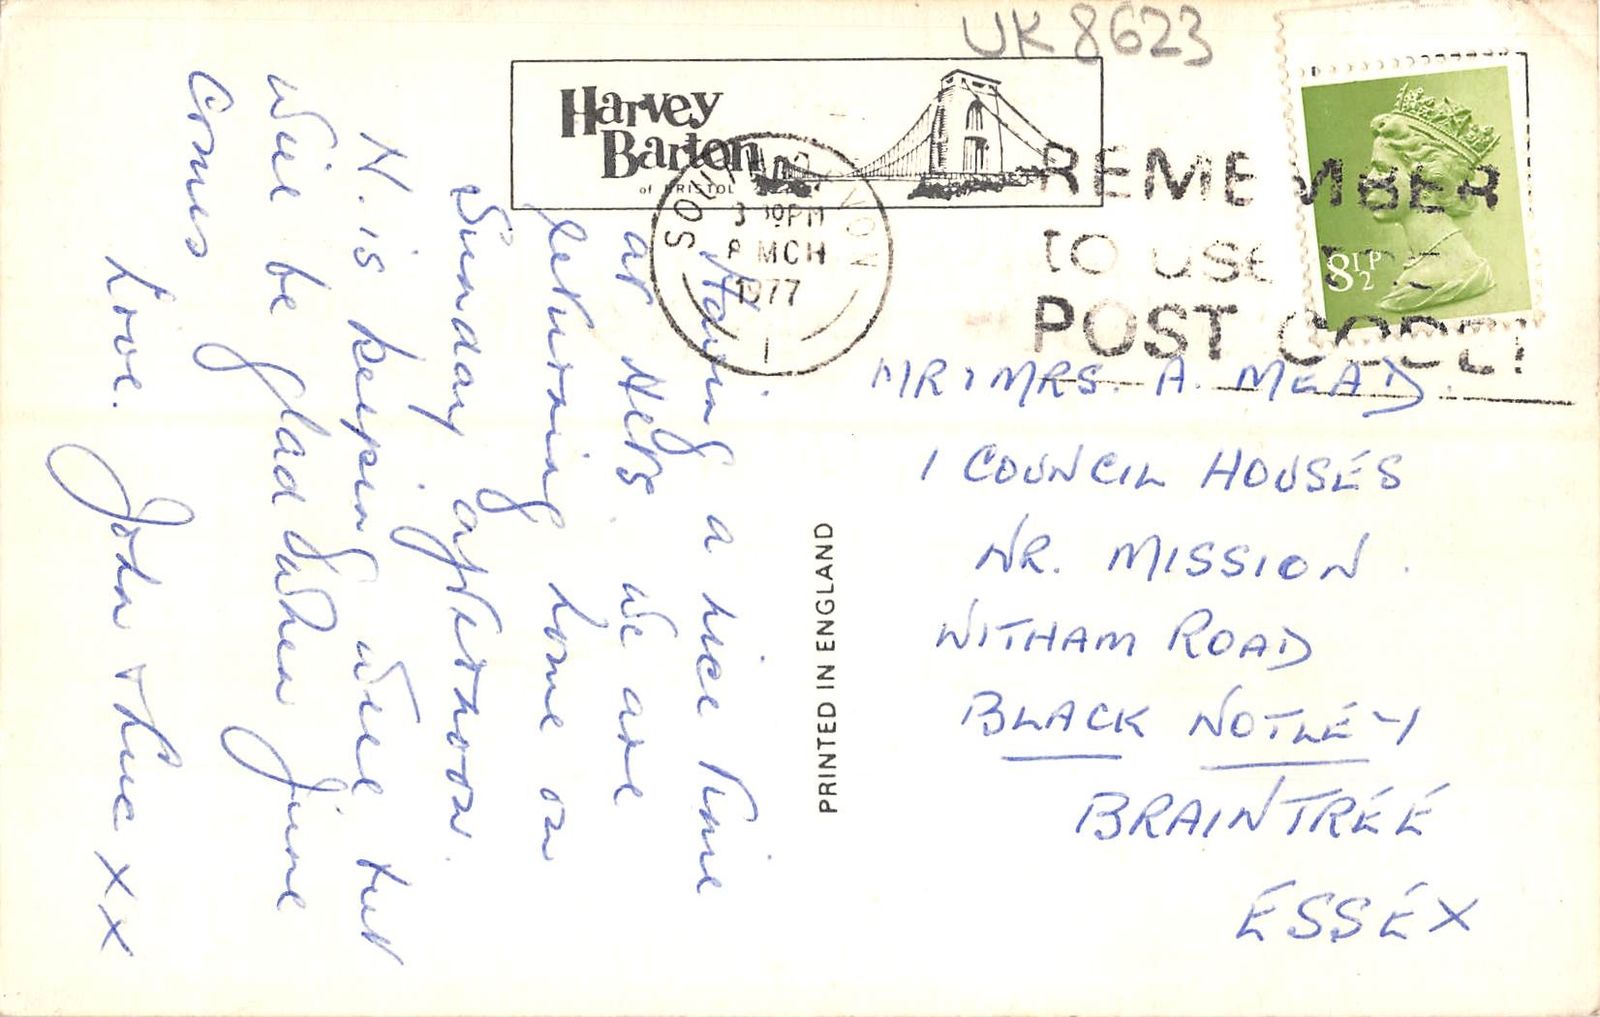 UK 8623
Harvey
Barton
of BRISTOL
3 30PM
8 MCH
1977
REMEMBER
TO USE THE
POST CODE!
8½P
Having a nice time
at Hers. We are
returning home on
Sunday afternoon.
N. is keeping well but
will be glad when June
comes
Love. John &
x x
PRINTED IN ENGLAND
MR & MRS. A. MEAD.
1 COUNCIL HOUSES
NR. MISSION.
WITHAM ROAD
BLACK NOTLEY
BRAINTREE
ESSEX